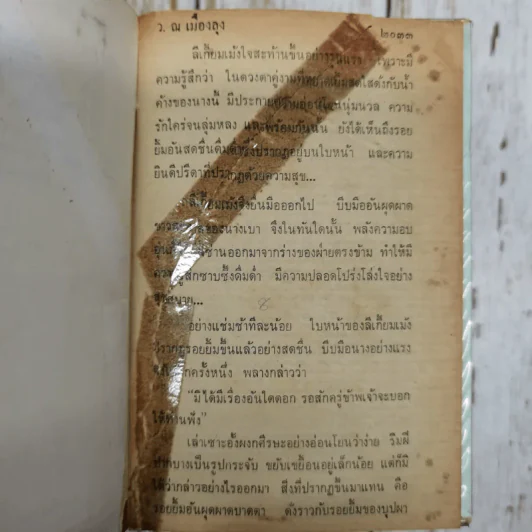 ว. ณ เมืองลุง ๒๐๓๓
ลีเกี้ยมเม้งใจสะท้านขึ้นอย่างรุนแรง เพราะมี
ความรู้สึกว่า ในดวงตาคู่งามที่ สดใสดังกับน้ำ
ค้างของนางนี้ มีประกาย นุ่มนวล ความ
รักใคร่จนลุ่มหลง และพร้อมกันนั้น ยังได้เห็นถึงรอย
ยิ้มอันสดชื่นดื่มด่ำ ปรากฏอยู่บนใบหน้า และความ
ยินดีปรีดาที่ปรากฏด้วยความสุข...
ลีเกี้ยมเม้งจึงยื่นมือออกไป บีบมืออันผุดผาด
ของนางเบา จึงในทันใดนั้น พลังความอบ
อุ่น ซ่านออกมาจากร่างของฝ่ายตรงข้าม ทำให้มี
ความรู้สึกซาบซึ้งดื่มด่ำ มีความปลอดโปร่งโล่งใจอย่าง
สุขสบาย...
อย่างแช่มช้าทีละน้อย ใบหน้าของลีเกี้ยมเม้ง
ปรากฏรอยยิ้มขึ้นแล้วอย่างสดชื่น บีบมือนางอย่างแรง
อีกครั้งหนึ่ง พลางกล่าวว่า
"มิได้มีเรื่องอันใดดอก รอสักครู่ข้าพเจ้าจะบอก
ให้ท่านฟัง"
เล่าเซาะฮั้งผงกศีรษะอย่างอ่อนโยนว่าง่าย ริมฝี
ปากบางเป็นรูปกระจับ ขยับเขยื้อนอยู่เล็กน้อย แต่ก็มิ
ได้ว่ากล่าวอย่างไรออกมา สิ่งที่ปรากฏขึ้นมาแทน คือ
รอยยิ้มอันผุดผาดบาดตา ดังราวกับรอยยิ้มของบุปผา